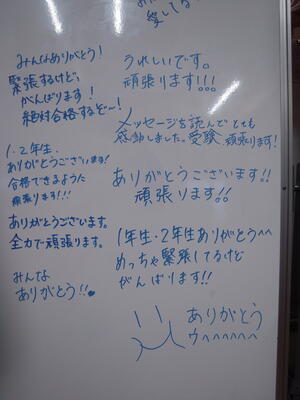 愛してる
みんなありがとう!
緊張するけど、
がんばります!
絶対合格するぞ〜!
1・2年生、
ありがとうございます!
合格できるように
頑張ります!!!
ありがとうございます。
全力で頑張ります。
みんな
ありがとう!!
うれしいです。
頑張ります!!!
メッセージを読んでとても
感動しました。受験、頑張ります!
ありがとうございます!!
頑張ります!!
1年生・2年生ありがとうへへ
めっちゃ緊張してるけど
がんばります!!
ありがとう
ウヘヘヘヘヘヘ